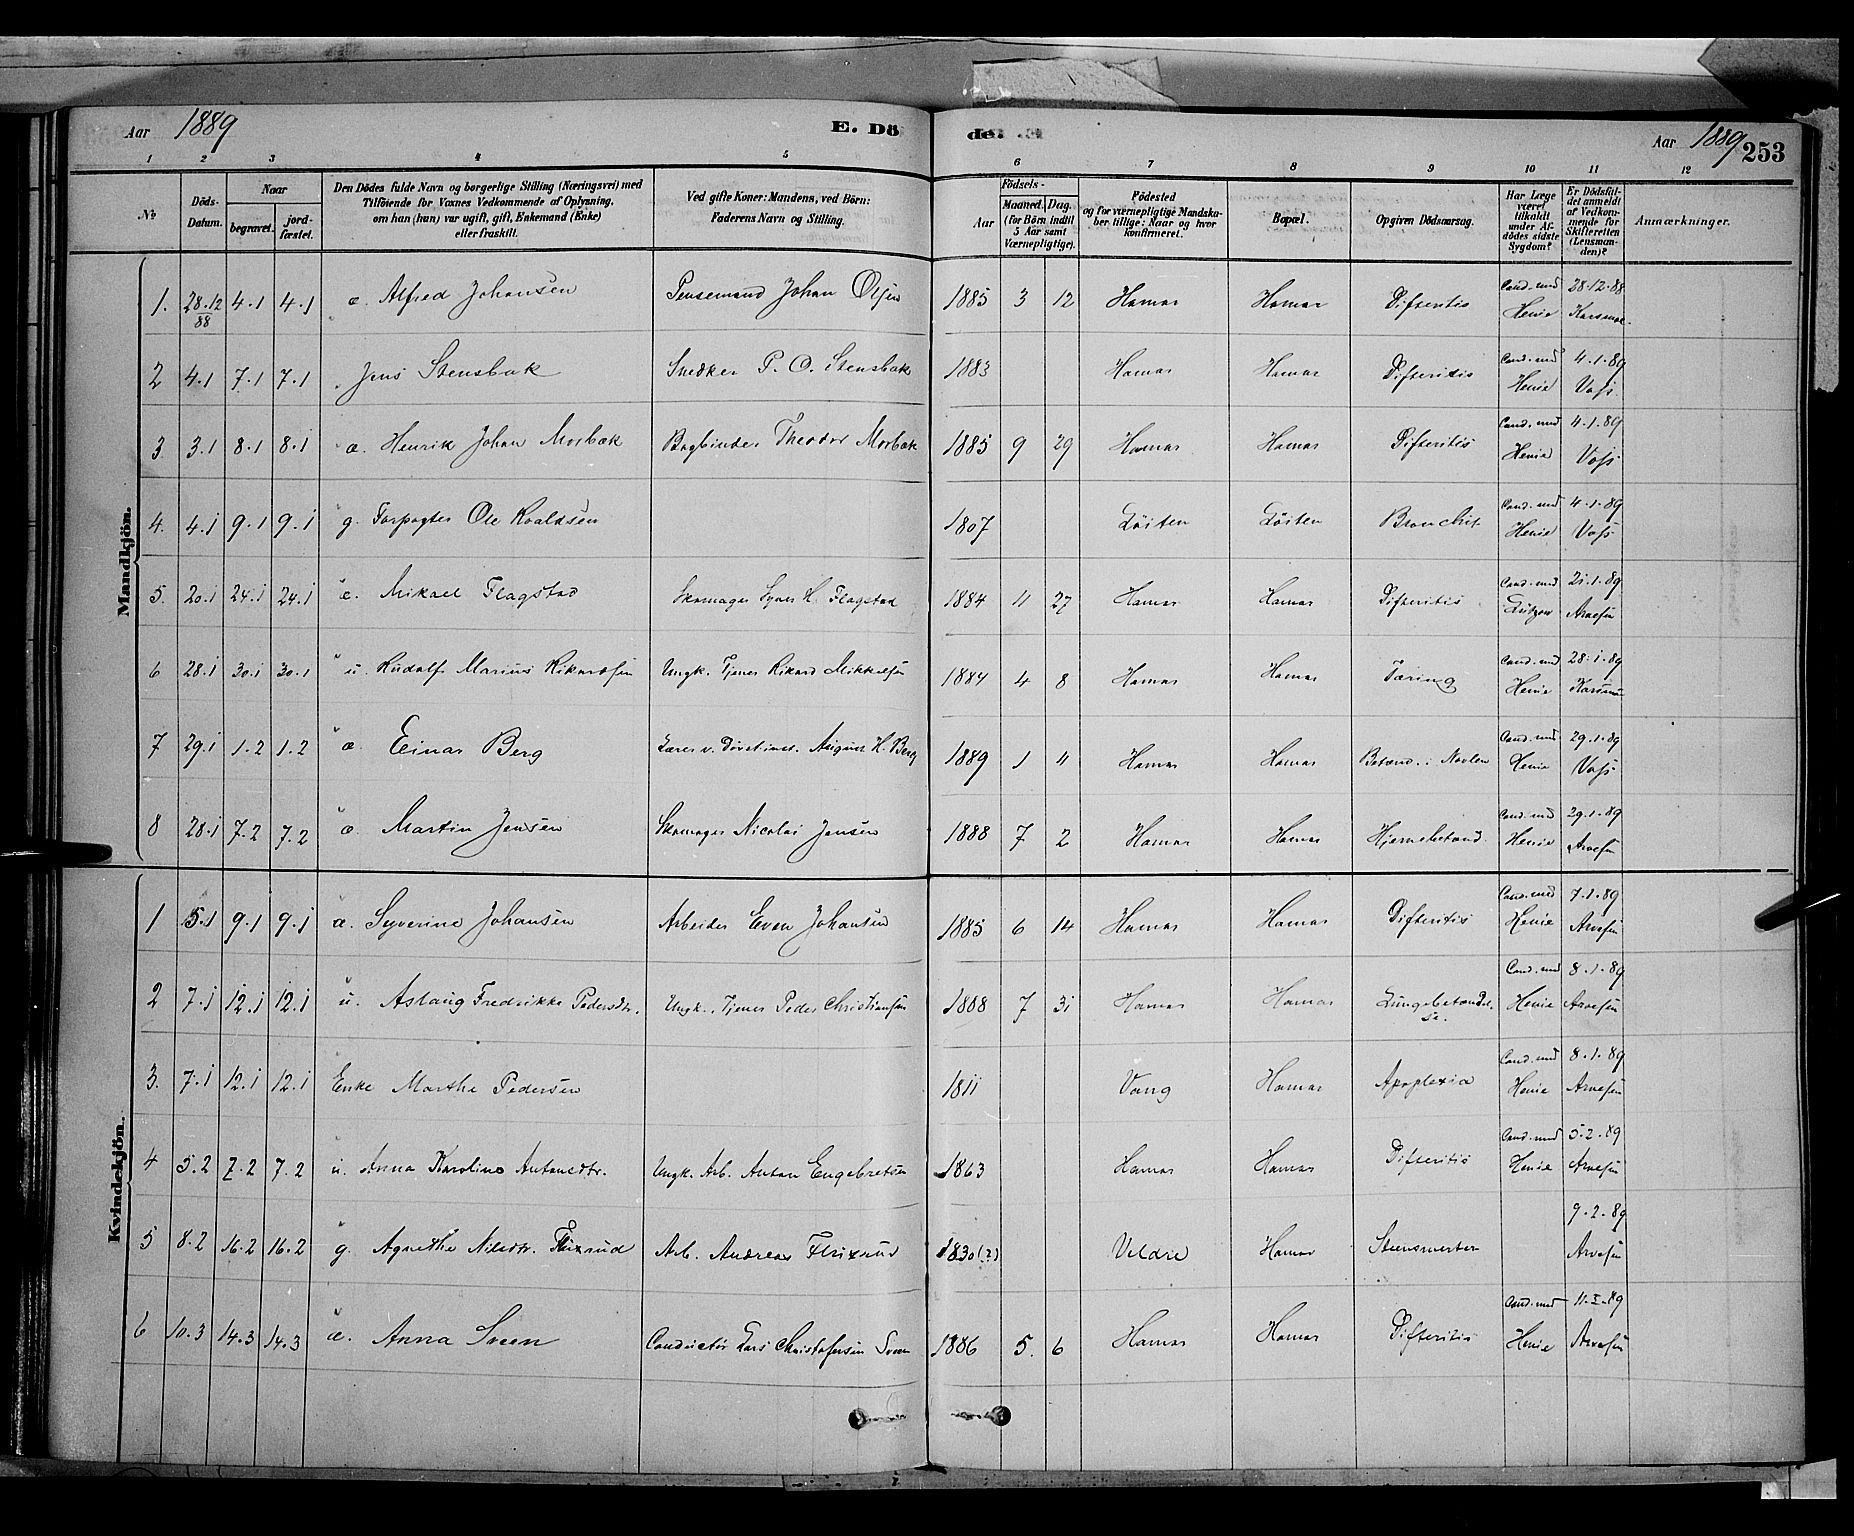 Aar 1889 E. Dö de. Aar 1889 253
1 2 3 4 5 6 7 8 9 10 11 12
№ Döds-Datum. Naar begravet. jordfæstet. Den Dödes fulde Navn og borgerlige Stilling (Næringsvei) med Tilföiende for Voxnes Vedkommende af Oplysning, om han (hun) var ugift, gift, Enkemand (Enke) eller fraskilt. Ved gifte Koner: Mandens, ved Börn: Faderens Navn og Stilling. Födsels- Aar Maaned. Dag. (for Börn indtil 5 Aar samt Værnepligtige). Födested og for værnepligtige Mandskaber tillige: Naar og hvor konfirmeret. Bopæl. Opgiven Dödsaarsag. Har Læge været tilkaldt under Afdödes sidste Sygdom? Er Dödsfaldet anmeldt af Vedkommende for Skifteretten (Lensmanden)? Anmærkninger.
Mandkjön.
1. 28.12 88 4.1 4.1 æ. Alfred Johansen Pensemand Johan Olsen 1885 3 12 Hamar Hamar Difteritis Cand. med Henie 28-12-88
2 4.1 7.1 7.1 Jens Stensbæk Snedker P. O. Stensbæk 1883 Hamar Hamar Difteritis Cand. med Henie 4-1-89 Voss
3 3.1 8.1 8.1 æ. Henrik Johan Morbæk Bogbinder Theodor Morbæk 1885 9 29 Hamar Hamar Difteritis Cand. med Henie 4-1-89 Voss
4. 4.1 9.1 9.1 g. Forpagter Ole Roaldsen 1807 Löiten Löiten Bronchit Cand. med Henie 4-1-89 Voss
5. 20.1 24.1 24.1 æ. Mikael Flagstad Skomager Syver H. Flagstad 1884 11 27 Hamar Hamar Difteritis Cand. med Lützow 21.1.89 Arvesen
6 28.1 30.1 30.1 u. Rudolf Marius Rikardsen Ungk. Tjener Rikard Mikkelsen 1884 4 8 Hamar Hamar Tæring Cand. med Henie 28-1-89
7 29.1 1.2 1.2 æ. Einar Berg Lærer v. Døvstinst. August H. Berg 1889 1 11 Hamar Hamar Betænd. i Navlen Cand. med Henie 29-1-89 Voss
8 28.1 7.2 7.2 æ. Martin Jensen Skomager Nicolai Jensen 1888 7 2 Hamar Hamar Hjernebetænd. Cand. med Henie 29.1.89 Arvesen
Kvindekjön.
1 5.1 9.1 9.1 æ. Syverine Johansen Arbeider Even Johansen 1885 6 14 Hamar Hamar Difteritis Cand. med Henie 7-1-89 Arvesen
2 7.1 12.1 12.1 u. Aslaug Fredrikke Pedersdtr. Ungk. Tjener Peder Christiansen 1888 7 31 Hamar Hamar Lungebetændelse. Cand. med Henie 8-1-89 Arvesen
3. 7.1 12.1 12.1 Enke Marthe Pedersen 1811 Vang Hamar Apoplexia Cand. med Henie 8-1-89 Arvesen
4 5.2 7.2 7.2 u. Anna Karoline Antonsdtr. Ungk. Arb. Anton Engebretsen 1863 Hamar Hamar Difteritis Cand. med Henie 5-2-89 Arvesen
5 8.2 16.2 16.2 g. Agnethe Nilsdtr. Flixrud Arb. Andreas Flixrud 1830 (?) Veldre Hamar Steensmerter 9-2-89 Arvesen
6 10.3 14.3 14.3 æ. Anna Sveen Conductör Lars Christofersen Sveen 1886 5. 6 Hamar Hamar Difteritis Cand. med Henie Arvesen